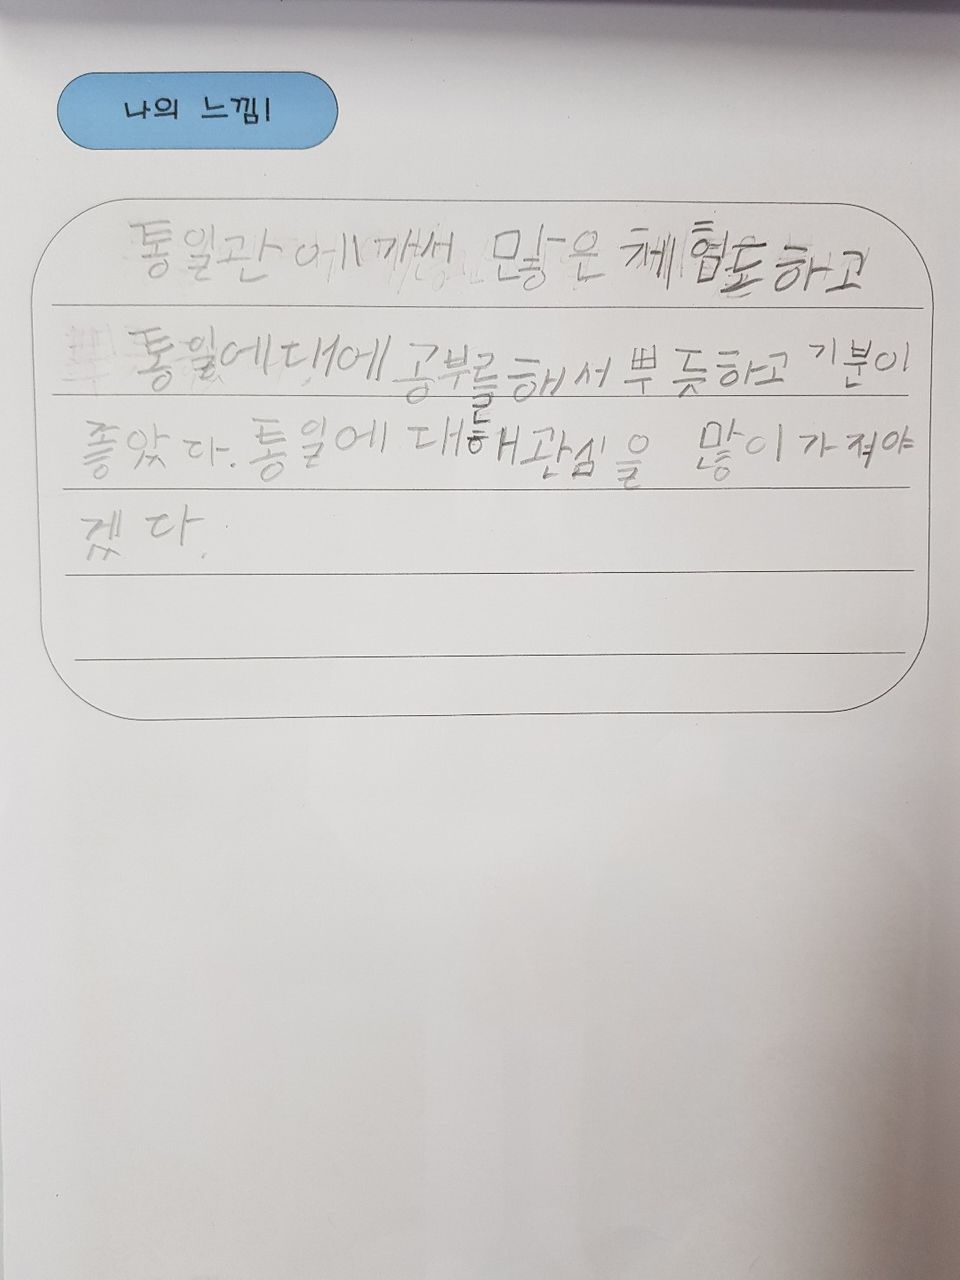 나의 느낌!
통일관에 가서 많은 체험도 하고
통일에 대에 공부를 해서 뿌듯하고 기분이
좋았다. 통일에 대해 관심을 많이 가져야
겠다.